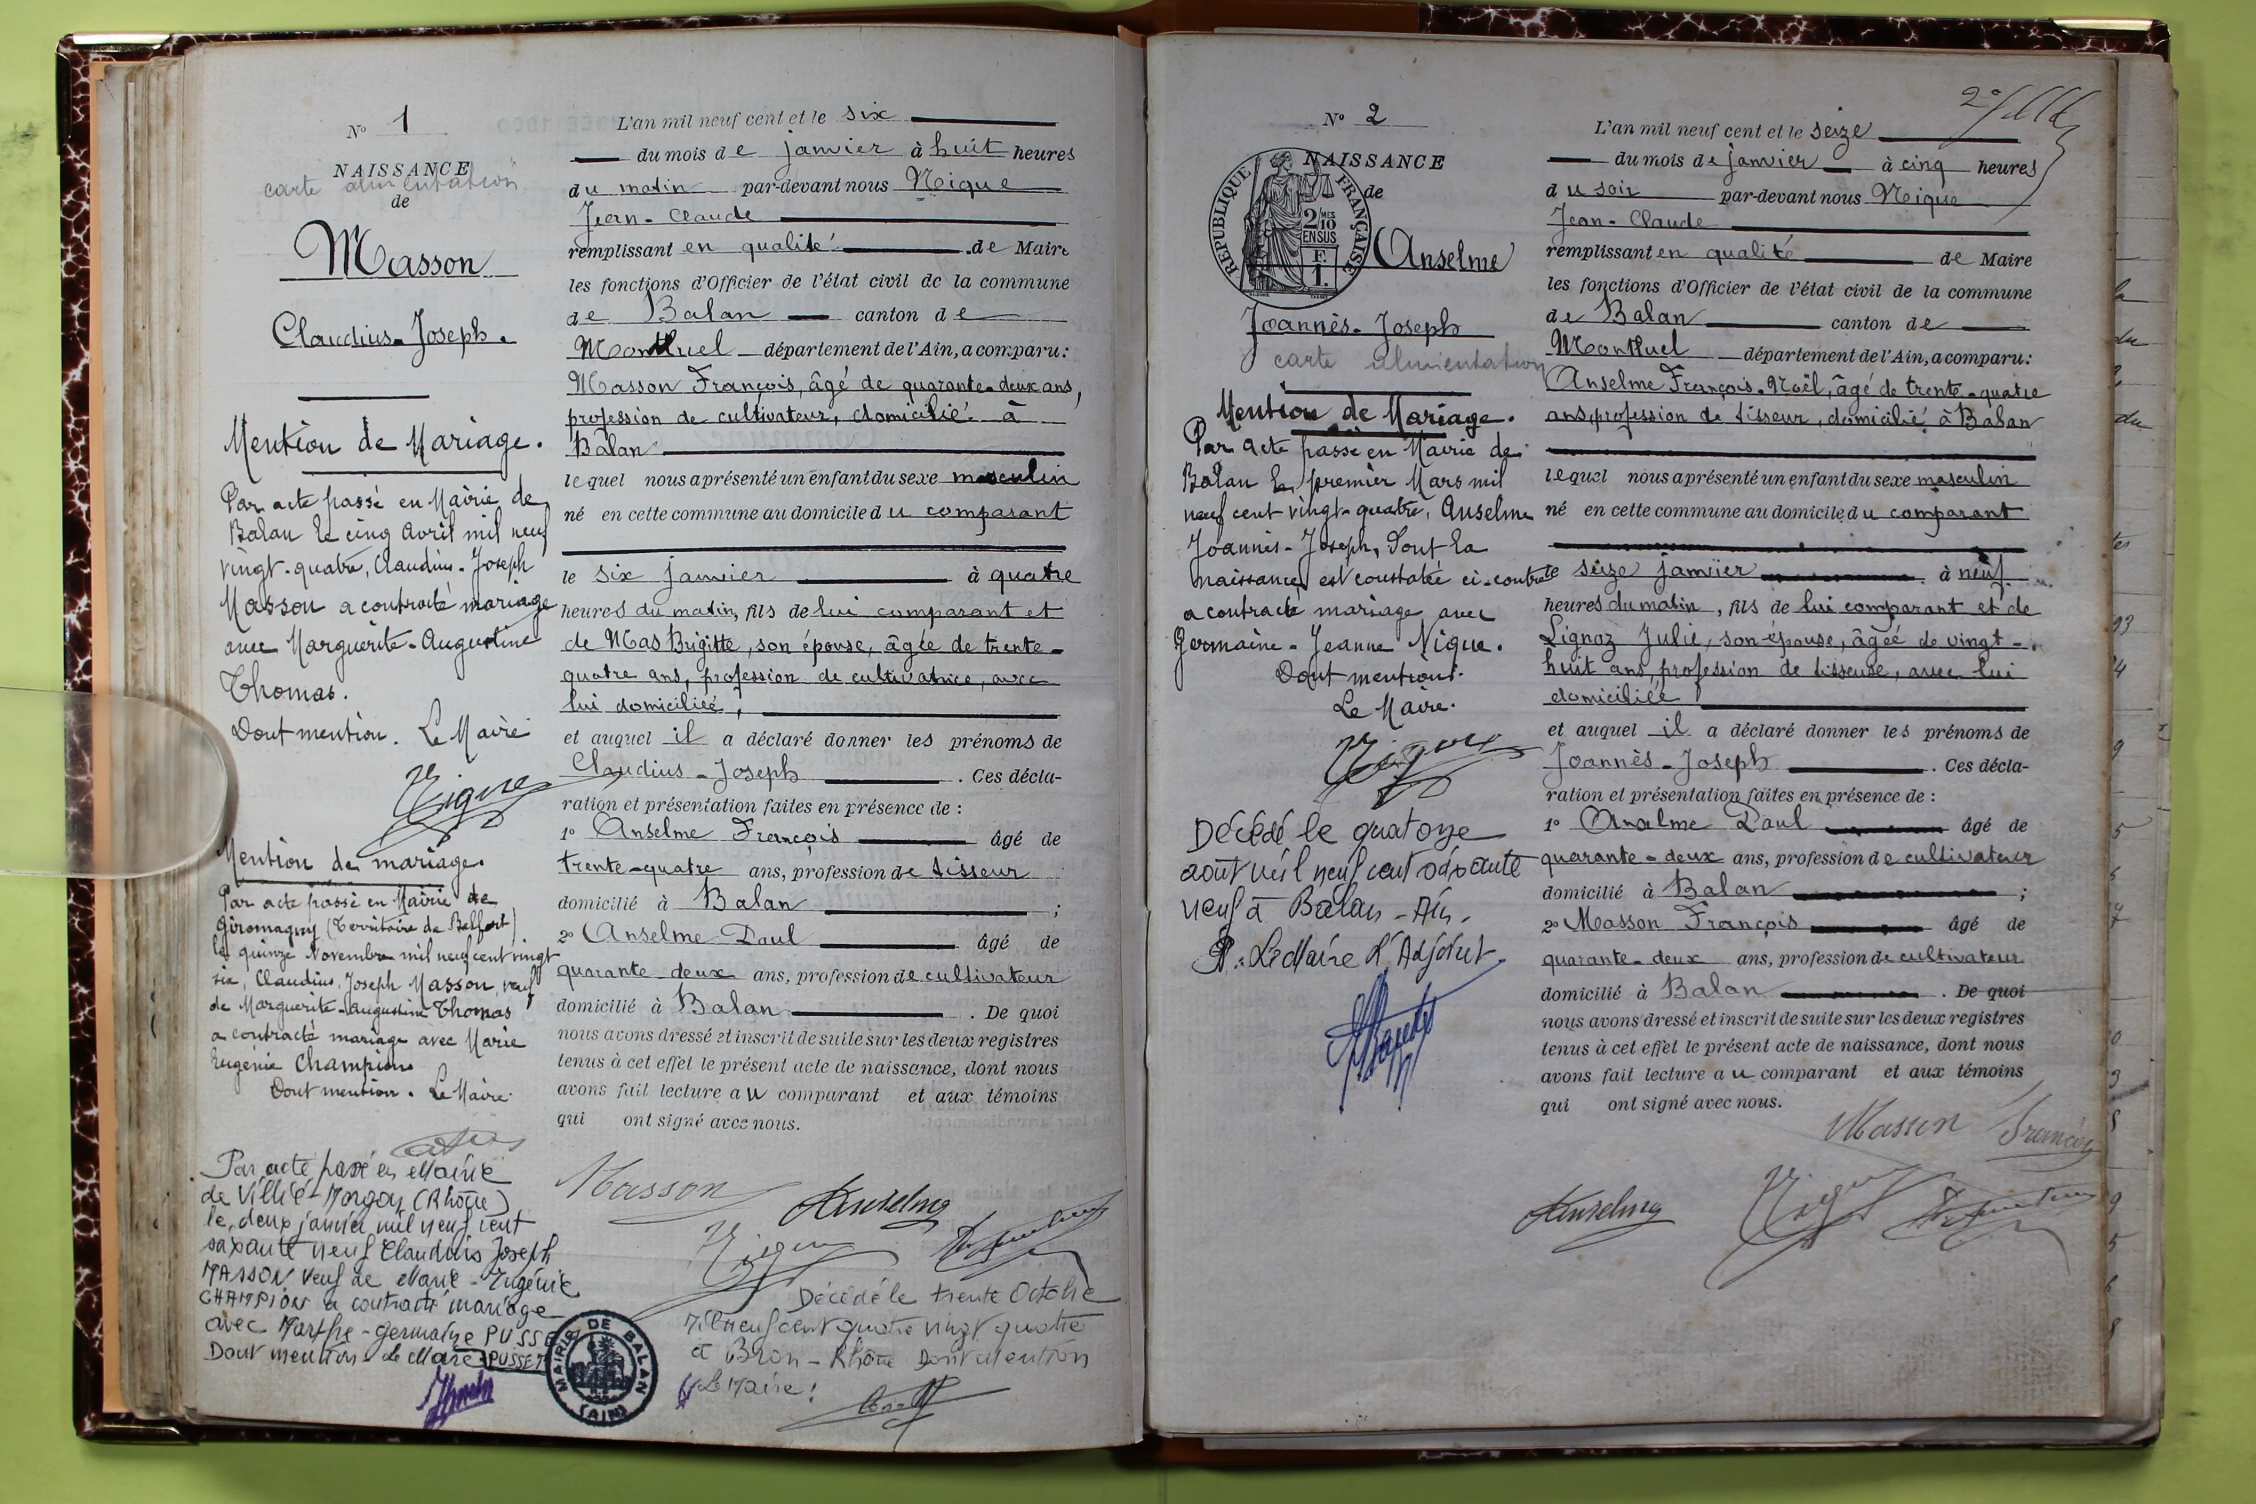 N° 1
NAISSANCE
carte alimentation
de
Masson
Claudius-Joseph.
Mention de Mariage.
Par acte passé en Mairie de
Balan le cinq Avril mil neuf
vingt-quatre, Claudius-Joseph
Masson a contracté mariage
avec Marguerite-Augustine
Thomas.
Dont mention. Le Maire
Nique
Mention de mariage.
Par acte passé en Mairie de
Giromagny (Territoire de Belfort)
le quinze Novembre mil neuf cent vingt
six, Claudius, Joseph Masson, veuf
de Marguerite-Augustine Thomas
a contracté mariage avec Marie
Eugénie Champion
Dont mention. Le Maire.
Par acte passé en Mairie
de Villié-Morgon (Rhône)
le deux janvier mil neuf cent
soixante neuf Claudius Joseph
MASSON veuf de Marie-Eugénie
CHAMPION a contracté mariage
avec Marthe-Germaine PUSSET
Dont mention. Le Maire. PUSSET
MAIRIE DE BALAN
(AIN)
L'an mil neuf cent et le six
du mois de janvier à huit heures
du matin par-devant nous Nique
Jean-Claude
remplissant en qualité de Maire
les fonctions d'Officier de l'état civil de la commune
de Balan canton de
Montluel département de l'Ain, a comparu:
Masson François, âgé de quarante-deux ans,
profession de cultivateur, domicilié à
Balan
lequel nous a présenté un enfant du sexe masculin
né en cette commune au domicile du comparant
le six janvier à quatre
heures du matin, fils de lui comparant et
de Mas Brigitte, son épouse, âgée de trente-
quatre ans, profession de cultivatrice, avec
lui domiciliée,
et auquel il a déclaré donner les prénoms de
Claudius-Joseph. Ces décla-
ration et présentation faites en présence de :
1° Anselme François âgé de
trente-quatre ans, profession de tisseur
domicilié à Balan ;
2° Anselme Paul âgé de
quarante deux ans, profession de cultivateur
domicilié à Balan. De quoi
nous avons dressé et inscrit de suite sur les deux registres
tenus à cet effet le présent acte de naissance, dont nous
avons fait lecture au comparant et aux témoins
qui ont signé avec nous.
Masson Anselme
Nique
Décédé le trente Octobre
Mil neuf cent quatre vingt quatre
à Bron - Rhône Dont mention
Le Maire :
N° 2
NAISSANCE
de
RÉPUBLIQUE FRANÇAISE
2/10 MES
EN SUS
F.
1.
Anselme
Joannès-Joseph
carte alimentation
Mention de Mariage.
Par acte passé en Mairie de
Balan le premier Mars mil
neuf cent vingt-quatre, Anselme
Joannès-Joseph, dont la
naissance est constatée ci-contre
a contracté mariage avec
Germaine-Jeanne Nique.
Dont mention.
Le Maire.
Nique
Décédé le quatorze
août mil neuf cent soixante
neuf à Balan - Ain.
P. Le Maire l'Adjoint.
L'an mil neuf cent et le seize
du mois de janvier à cinq heures
du soir par-devant nous Nique
Jean-Claude
remplissant en qualité de Maire
les fonctions d'Officier de l'état civil de la commune
de Balan canton de
Montluel département de l'Ain, a comparu:
Anselme François-Noël, âgé de trente-quatre
ans, profession de tisseur, domicilié à Balan
lequel nous a présenté un enfant du sexe masculin
né en cette commune au domicile du comparant
le seize janvier à neuf
heures du matin, fils de lui comparant et de
Lignoz Julie, son épouse, âgée de vingt-
huit ans, profession de tisseuse, avec lui
domiciliée
et auquel il a déclaré donner les prénoms de
Joannès-Joseph. Ces décla-
ration et présentation faites en présence de :
1° Anselme Paul âgé de
quarante-deux ans, profession de cultivateur
domicilié à Balan ;
2° Masson François âgé de
quarante-deux ans, profession de cultivateur
domicilié à Balan. De quoi
nous avons dressé et inscrit de suite sur les deux registres
tenus à cet effet le présent acte de naissance, dont nous
avons fait lecture au comparant et aux témoins
qui ont signé avec nous.
Masson François
Anselme Nique